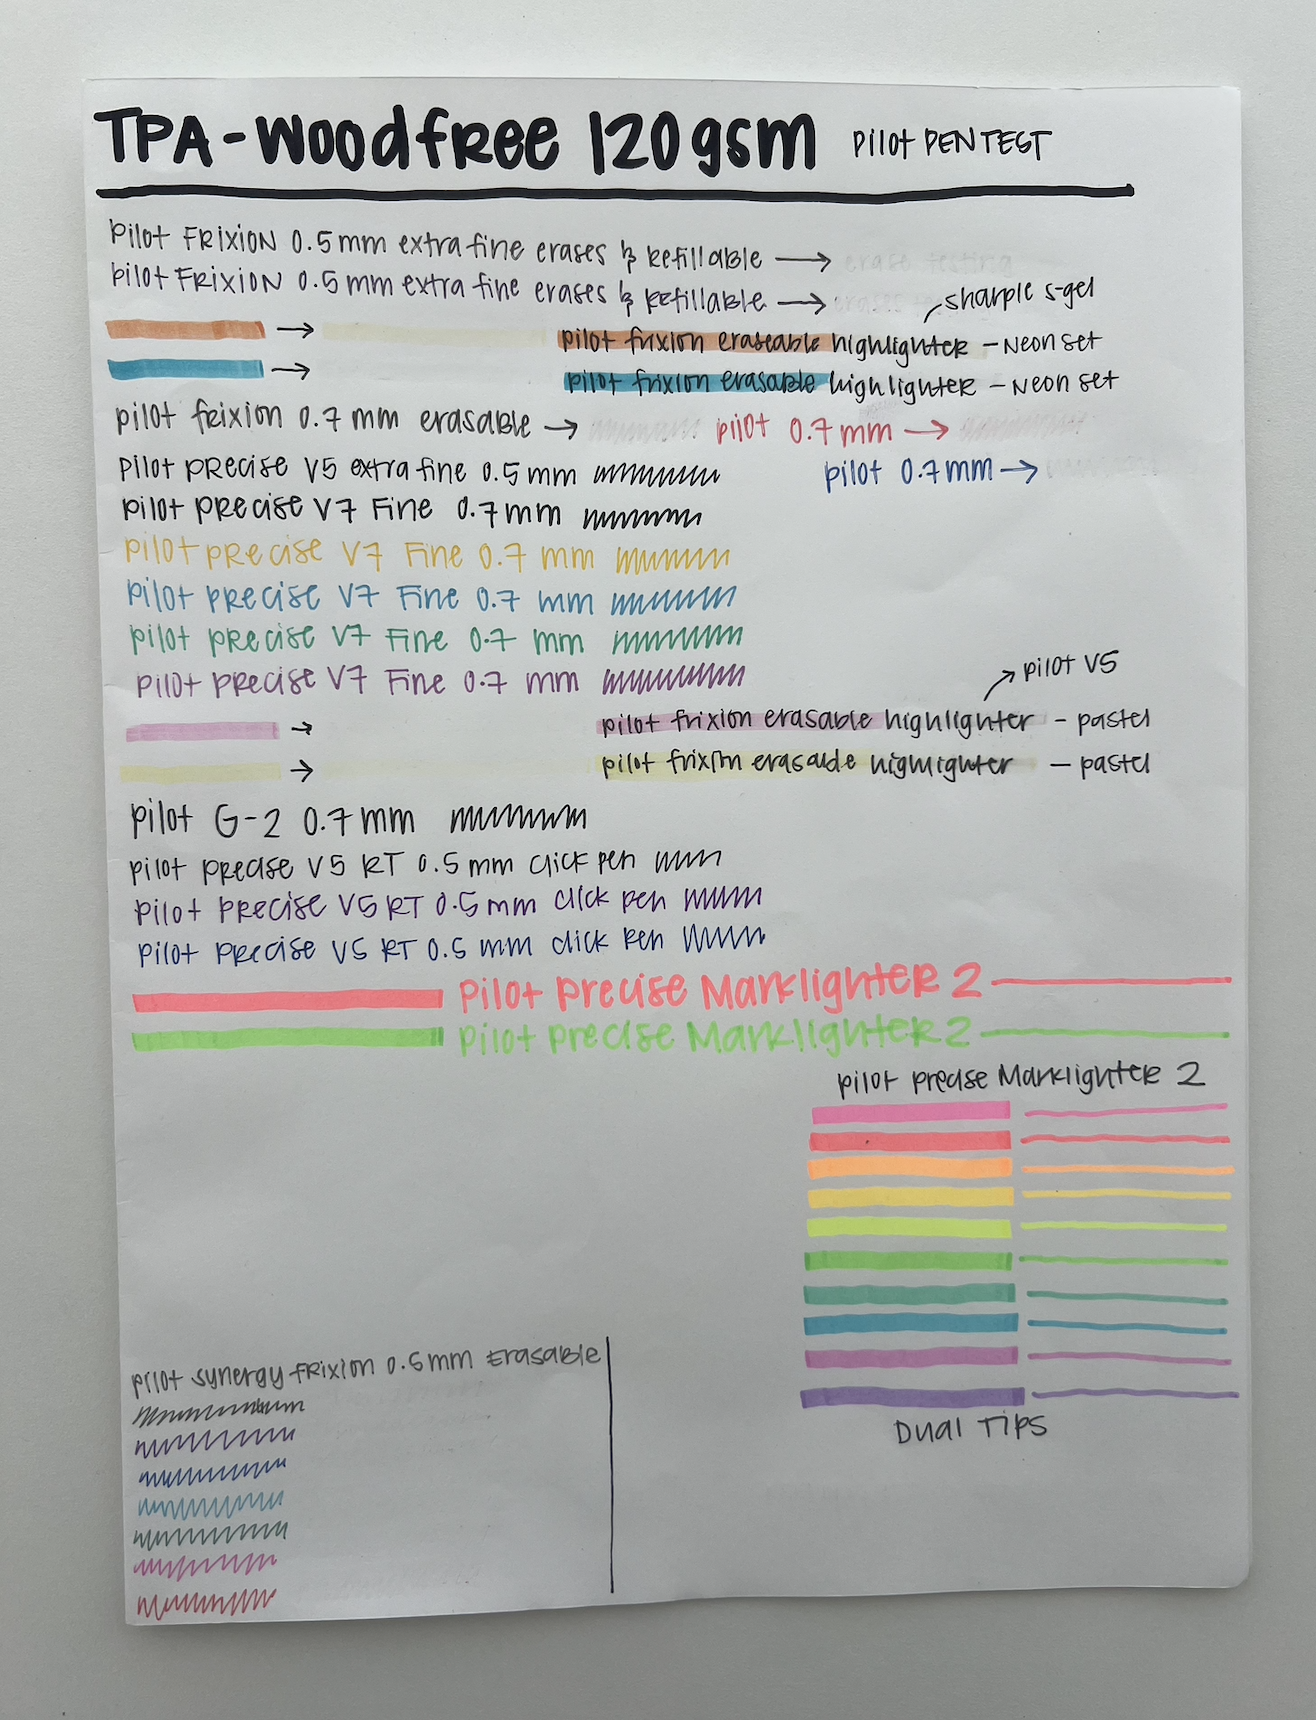 TPA-Woodfree 120gsm Pilot PEN TEST
pilot FRIXION 0.5mm extra fine erases & Refillable → erase testing
pilot FRIXION 0.5mm extra fine erases & Refillable →
sharpie s-gel
→ pilot frixion eraseable highlighter - Neon set
→ pilot frixion erasable highlighter - Neon set
pilot frixion 0.7 mm erasable → pilot 0.7mm →
pilot precise V5 extra fine 0.5mm pilot 0.7mm →
pilot precise V7 Fine 0.7mm
pilot precise V7 Fine 0.7 mm
pilot precise V7 Fine 0.7 mm
pilot precise V7 Fine 0.7 mm
pilot precise V7 Fine 0.7 mm
pilot V5
→ pilot frixion erasable highlighter - pastel
→ pilot frixion erasable highlighter - pastel
pilot G-2 0.7mm
pilot precise V5 RT 0.5mm click pen
pilot precise V5 RT 0.5mm click pen
pilot precise V5 RT 0.5 mm click pen
Pilot Precise Marklighter 2
pilot precise Marklighter 2
pilot precise Marklighter 2
Dual Tips
pilot synergy frixion 0.5mm Erasable